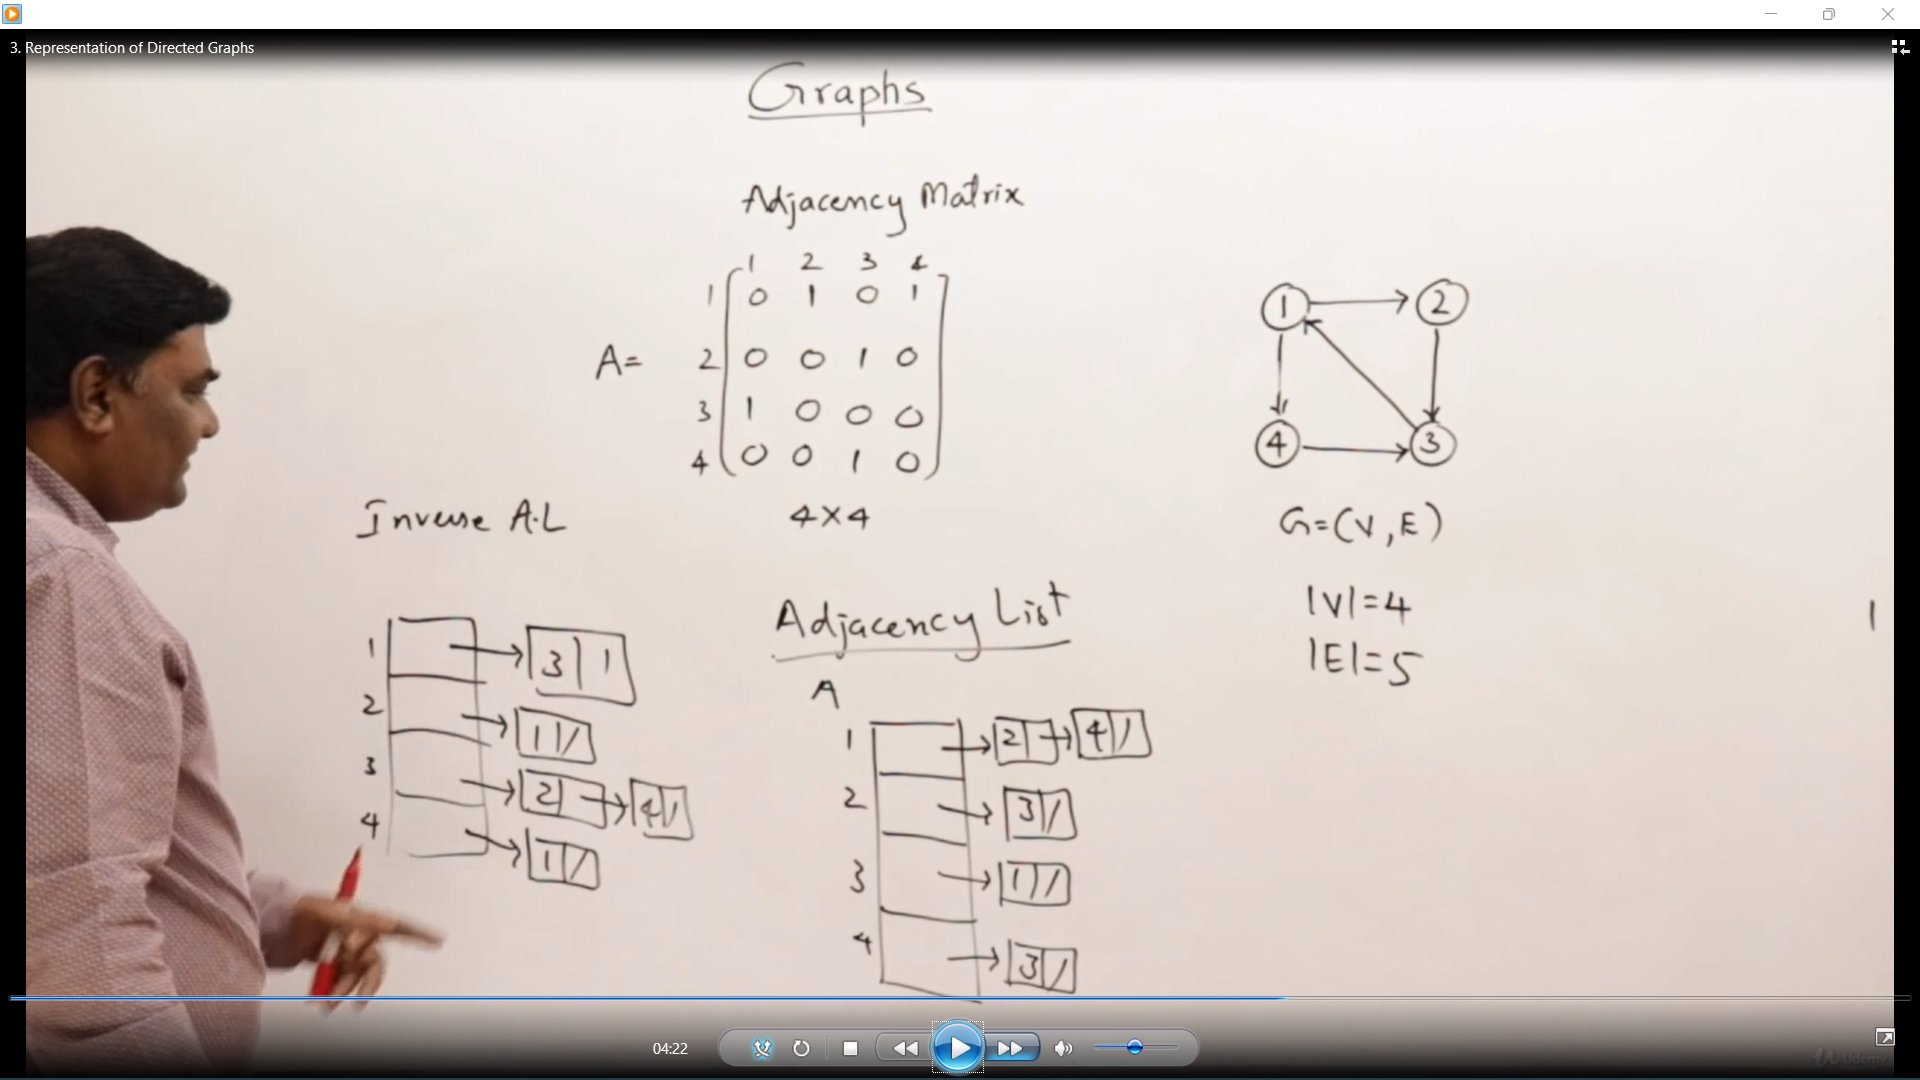 3. Representation of Directed Graphs
Graphs
Adjacency Matrix
1 2 3 4
1 0 1 0 1
A= 2 0 0 1 0
3 1 0 0 0
4 0 0 1 0
4×4
1 2
4 3
G=(V,E)
|V|=4
|E|=5
Inverse A.L
1 3 |
2 1 /
3 2 4 /
4 1 /
Adjacency List
A
1 2 4 /
2 3 /
3 1 /
4 3 /
04:22
Udemy